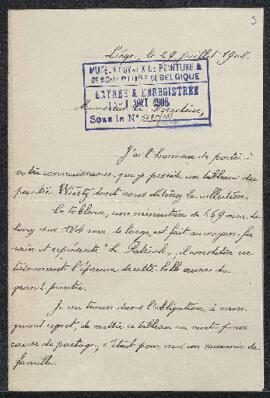 3
Liège, le 29 juillet 1908.
MUSÉES ROYAUX DE PEINTURE &
DE SCULPTURE DE BELGIQUE
ENTRÉE & ENREGISTRÉE
AOUT 1908
Sous le N°
Monsieur le Secrétaire,
J'ai l'honneur de porter à
votre connaissance, que je possède un tableau du
peintre Wiertz dont vous détenez la collection.
Ce tableau, une miniature de 169 mm. de
long sur 124 mm. de large, est fait au crayon fu-
sain et représente "le Patrocle",
du
grand peintre.
Je me trouve dans l'obligation, à mon
grand regret, de mettre ce tableau en vente pour
cause de partage, c'était pour moi un souvenir de
famille.